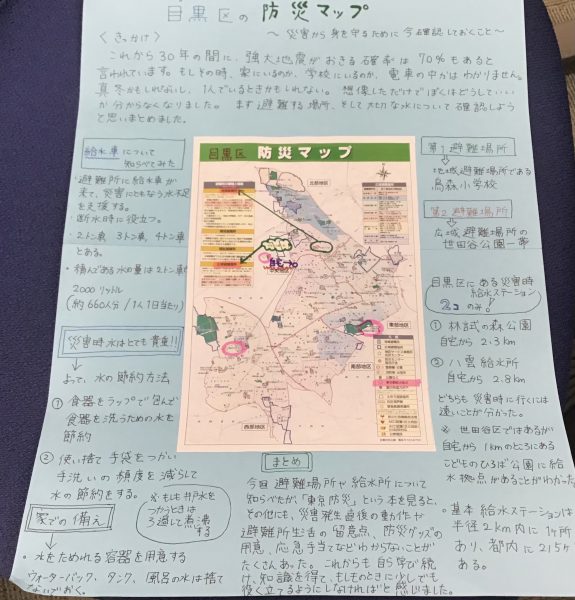 目黒区の防災マップ
〜 災害から身を守るために今確認しておくこと〜
〈きっかけ〉
これから30年の間に、強大地震がおきる確率は70%もあると
言われています。もしその時、家にいるのか、学校にいるのか、電車の中かはわかりません。
真冬かもしれないし、1人でいるときかもしれない。想像しただけでぼくはどうしていい
か分からなくなりました。まず避難する場所、そして大切な水について確認しよう
と思いまとめました。
給水車について
調べてみた
・避難所に給水車が
来て、災害にともなう水不足
を支援する。
・断水時に役立つ。
・2トン車、3トン車、4トン車
とある。
・積んである水の量は2トン車だ
2000リットル
(約660人分/1人1日当たり)
災害時水はとても貴重!!
よって、水の節約方法
① 食器をラップで包んで
食器を洗うための水を
節約
② 使い捨て手袋をつかい
手洗いの頻度を減らして
水の節約をする。
※もしも井戸水を
つかうときは
3過して煮沸
する
家での備え
・水をためれる容器を用意する
ウォーターバック、タンク、風呂の水は捨て
ないでおく。
目黒区 防災マップ
北部地区
自宅
中央地区
東部地区
南部地区
西部地区
まとめ
今回避難場所や給水所について
知らべたが「東京防災」という本を見ると、
その他にも、災害発生直後の動作や
避難所生活の留意点、防災グッズの
用意、応急手当てなどわからないことが
たくさんあった。これからも自ら学び続
け、知識を得て、もしものときに少しでも
役に立てるようにしなければと感じました。
第1避難場所
地域避難場所である
烏森小学校
第2避難場所
広域避難場所の
世田谷公園一帯
目黒区にある災害時
給水ステーション
2コのみ!
① 林試の森公園
自宅から2.3km
② 八雲給水所
自宅から2.8km
どちらも災害時に行くには
遠いことが分かった。
※ 世田谷区ではあるが
自宅から1kmのところにある
こどものひろば公園に給
水拠点があることがわかった。
・基本給水ステーションは
半径2km内に1ヶ所
あり、都内に215ヶ
ある。